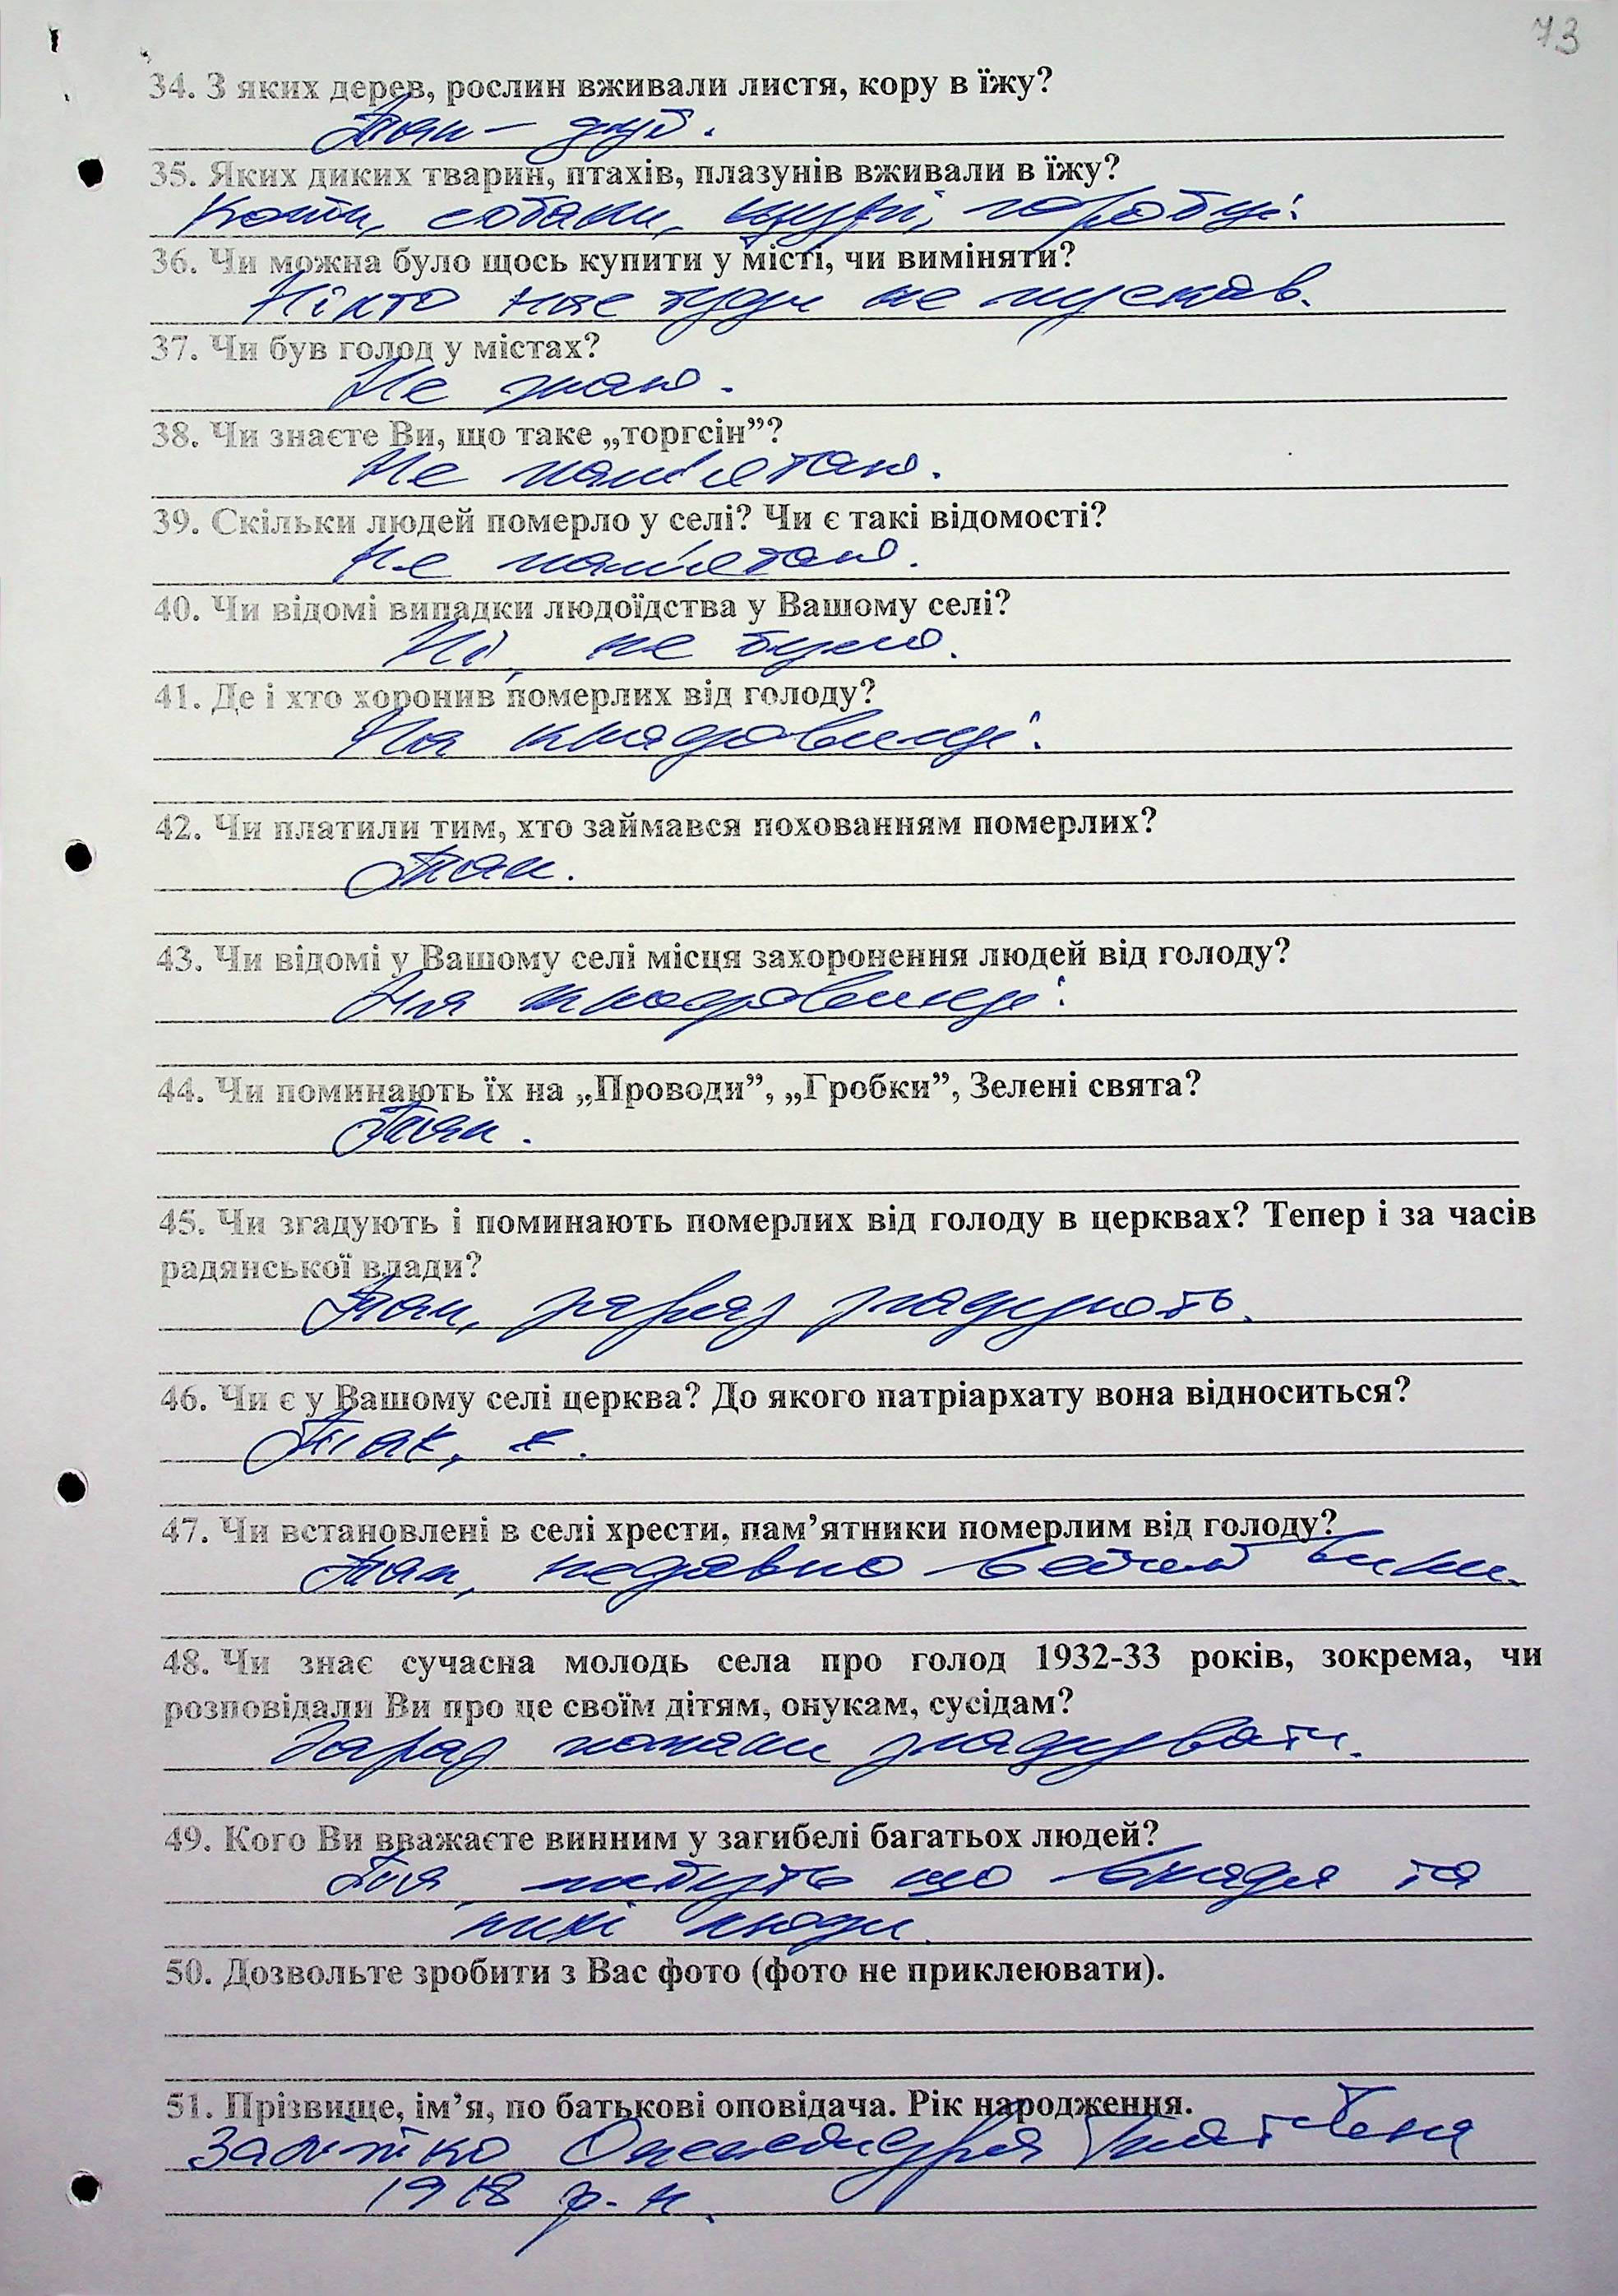 73
34. З яких дерев, рослин вживали листя, кору в їжу?
Так – дуб.
35. Яких диких тварин, птахів, плазунів вживали в їжу?
Коти, собаки, щурі, горобці.
36. Чи можна було щось купити у місті, чи виміняти?
Ніхто нас туди не пускав.
37. Чи був голод у містах?
Не знаю.
38. Чи знаєте Ви, що таке „торгсін”?
Не пам'ятаю.
39. Скільки людей померло у селі? Чи є такі відомості?
Не пам'ятаю.
40. Чи відомі випадки людоїдства у Вашому селі?
Ні, не було.
41. Де і хто хоронив померлих від голоду?
На кладовищі.
42. Чи платили тим, хто займався похованням померлих?
Так.
43. Чи відомі у Вашому селі місця захоронення людей від голоду?
На кладовищі.
44. Чи поминають їх на „Проводи”, „Гробки”, Зелені свята?
Так.
45. Чи згадують і поминають померлих від голоду в церквах? Тепер і за часів
радянської влади?
Так, зараз згадують.
46. Чи є у Вашому селі церква? До якого патріархату вона відноситься?
Так, є.
47. Чи встановлені в селі хрести, пам’ятники померлим від голоду?
Так, недавно
48. Чи знає сучасна молодь села про голод 1932-33 років, зокрема, чи
розповідали Ви про це своїм дітям, онукам, сусідам?
Зараз почали згадувати.
49. Кого Ви вважаєте винним у загибелі багатьох людей?
що влада та
люди.
50. Дозвольте зробити з Вас фото (фото не приклеювати).
51. Прізвище, ім’я, по батькові оповідача. Рік народження.
Олександра
1918 р.н.